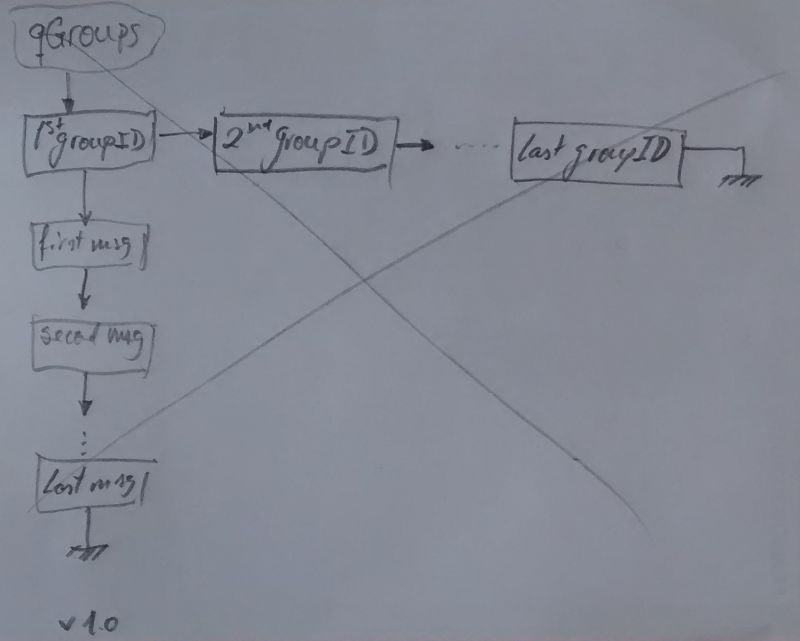 qGroups
1st groupID
2nd groupID
last groupID
first msg
second msg
last msg
v 1.0